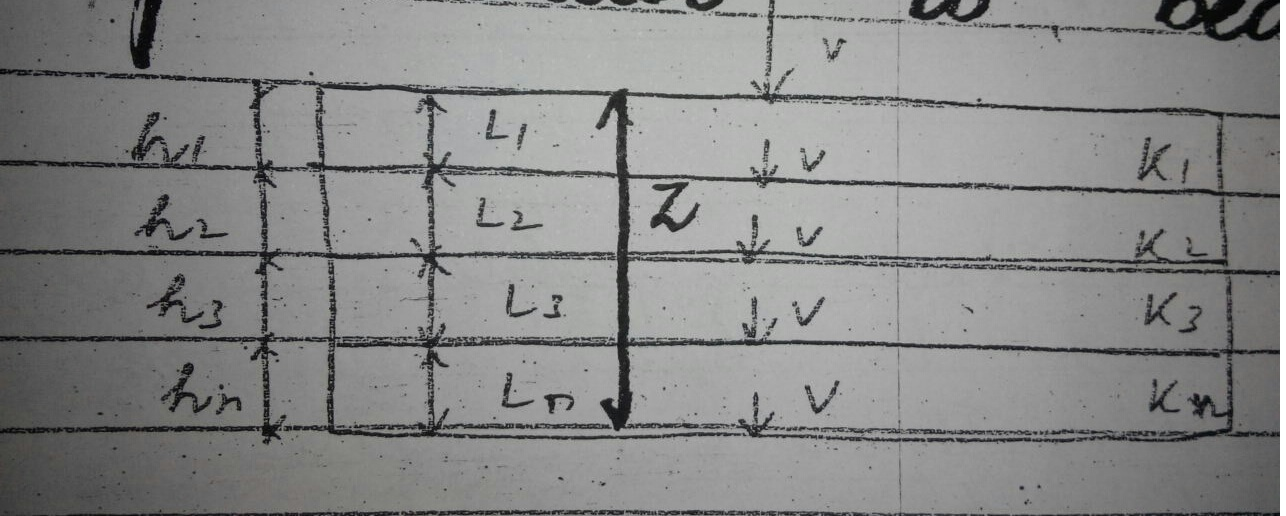 to
v
h1 L1 v K1
h2 L2 Z v K2
h3 L3 v K3
hn Ln v Kn